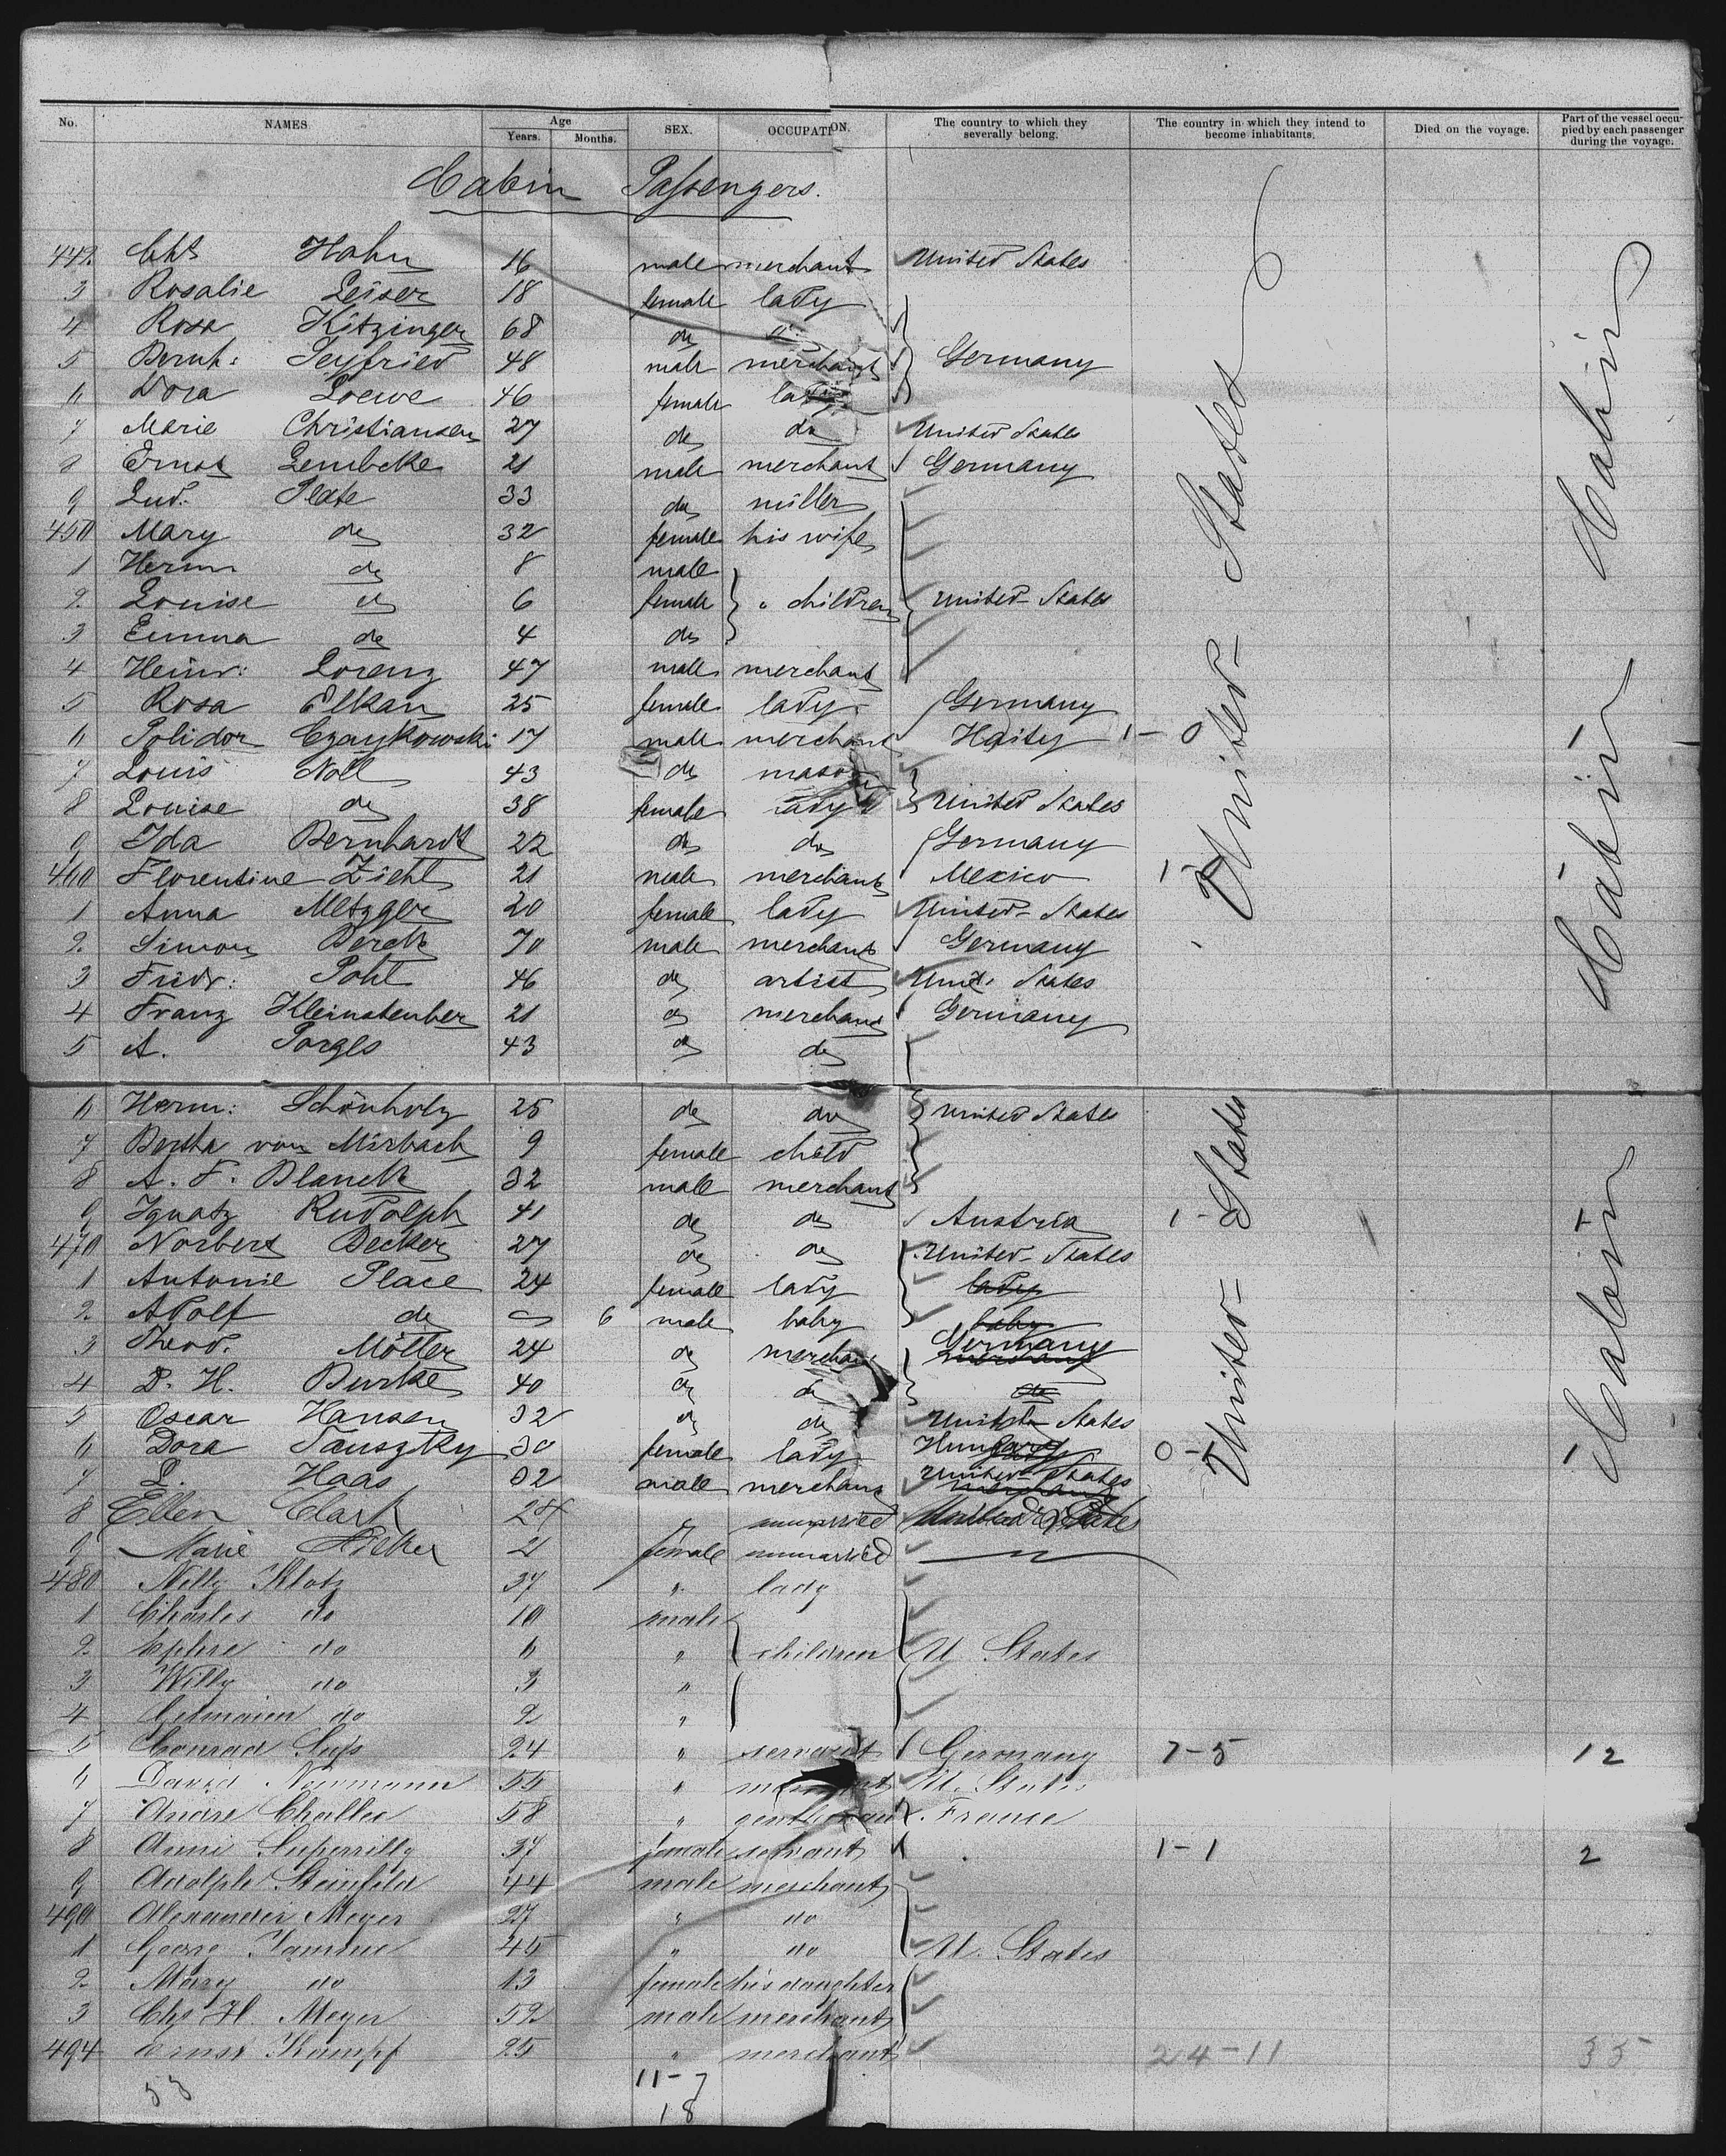 No. NAMES Age Years. Months. SEX. OCCUPATION. The country to which they severally belong. The country in which they intend to become inhabitants. Died on the voyage. Part of the vessel occupied by each passenger during the voyage.
Cabin Passengers.
442. Chs Hahn 16 male merchant United States
3 Rosalie Leiser 18 female lady
4 Rosa Kitzinger 68 do
5 Bernh: Seyfried 48 male merchant Germany
6 Dora Loewe 46 female lady
7 Marie Christiansen 27 do do United States
8 Ernst Lembcke 21 male merchant Germany
9 Lud: Plate 33 do miller
450 Mary do 32 female his wife
1 Herm do 8 male
2. Louise do 6 female " children United States
3 Emma do 4 do
4 Heinr: Lorenz 47 male merchant
5 Rosa Elkan 25 female lady Germany
6 Polidor Czaykowski 17 male merchant Haity 1-0
7 Louis Noll 43 do mason
8 Louise do 38 female lady United States
9 Ida Bernhardt 22 do do Germany
460 Florentine Ziehl 21 male merchant Mexico
1 Anna Metzger 20 female lady United States
2. Simon 70 male merchant Germany
3 Friedr: Pohl 46 do artist Unit. States
4 Franz Kleinsteuber 21 do merchant Germany
5 A. Porges 43 do do
United States
Cabin Cabin
6 Herm: Schönholz 25 do do United States
7 Bertha von Mirbach 9 female child
8 A. F. Blanck 32 male merchant
9 Ignatz Rudolph 41 do do Austria
470 Norbert Becker 27 do do United States
1 Antonie Place 24 female lady lady
2. Adolf do 6 male baby baby
3 Theod. Möller 24 do merchant Germany
4 D. H. Burke 40 do do do
5 Oscar Hansen 32 do do United States
6 Dora Tausztky 30 female lady Hungary
7 L. Haas 32 male merchant United States
8 Ellen Clark 24 unmarried United States
9 Marie 21 female unmarried
480 Nelly Klotz 37 " lady
1 Charles do 10 male
2. do 6 " children U States
3 Willy do 3 "
4 do 2 "
5 Conrad 24 " servant Germany 7-5 12
6 David Neumann 55 " merchant U. States
7 Andre 58 " gentleman France
8 37 female servant 1-1 2
9 Adolph Steinfeld 44 male merchant
490 Alexander Meyer 27 " do
1 George 45 " do U. States
2. Mary do 13 female his daughter
3 Chs H. Meyer 52 male merchant
494 Ernst Kampf 25 " merchant 24-11 35
53 11-7
18
United States
Cabin